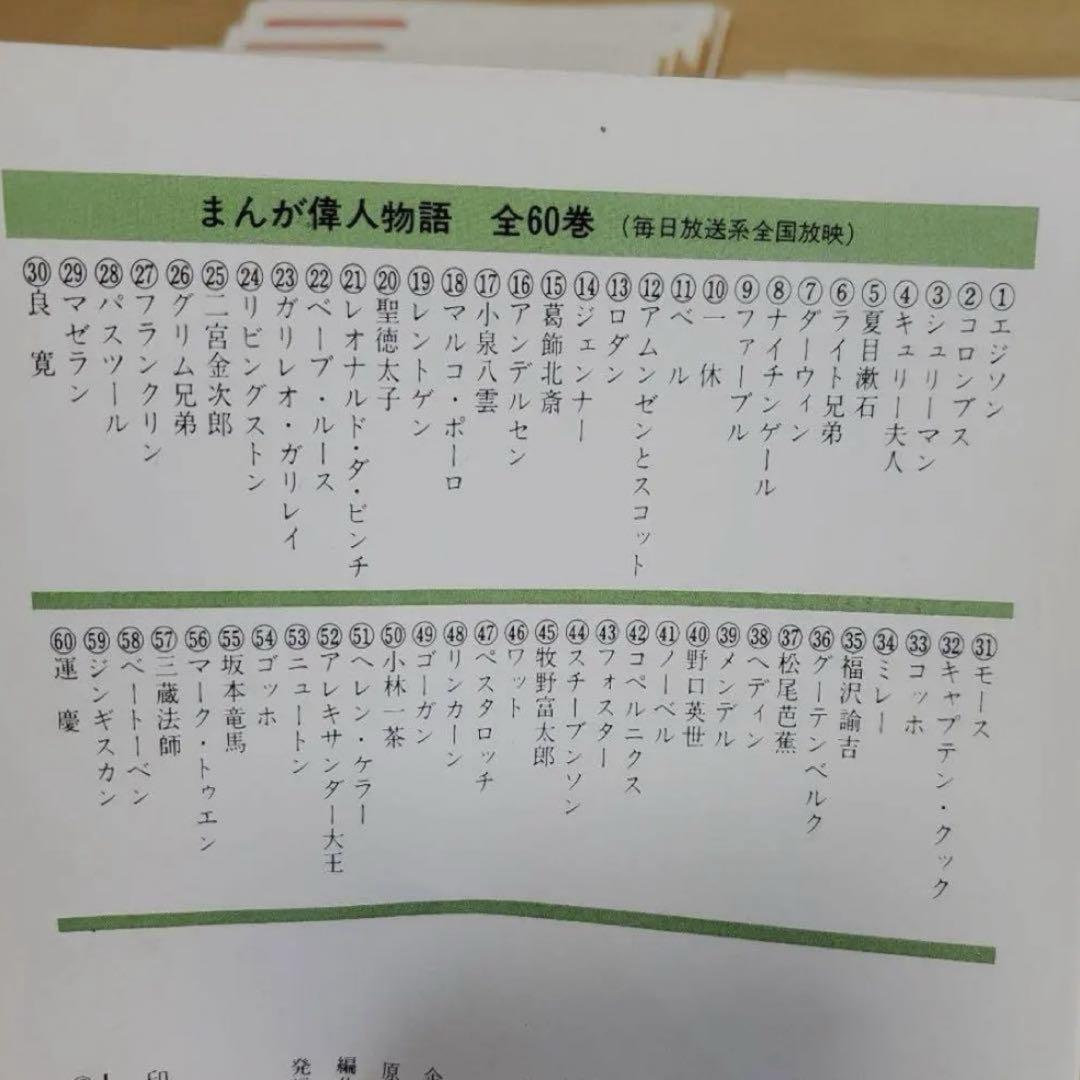 まんが偉人物語 全60巻 (毎日放送系全国放映)
①エジソン
②コロンブス
③シュリーマン
④キュリー夫人
⑤夏目漱石
⑥ライト兄弟
⑦ダーウィン
⑧ナイチンゲール
⑨ファーブル
⑩一休
⑪ベル
⑫アムンゼンとスコット
⑬ロダン
⑭ジェンナー
⑮葛飾北斎
⑯アンデルセン
⑰小泉八雲
⑱マルコ・ポーロ
⑲レントゲン
⑳聖徳太子
㉑レオナルド・ダ・ビンチ
㉒ベーブ・ルース
㉓ガリレオ・ガリレイ
㉔リビングストン
㉕二宮金次郎
㉖グリム兄弟
㉗フランクリン
㉘パスツール
㉙マゼラン
㉚良寛
㉛モース
㉜キャプテン・クック
㉝コッホ
㉞ミレー
㉟福沢諭吉
㊱グーテンベルク
㊲松尾芭蕉
㊳ヘディン
㊴メンデル
㊵野口英世
㊶ノーベル
㊷コペルニクス
㊸フォスター
㊹スチーブンソン
㊺牧野富太郎
㊻ワット
㊼ペスタロッチ
㊽リンカーン
㊾ゴーガン
㊿小林一茶
51ヘレン・ケラー
52アレキサンダー大王
53ニュートン
54ゴッホ
55坂本竜馬
56マーク・トゥエン
57三蔵法師
58ベートーベン
59ジンギスカン
60運慶
原
編
発
印